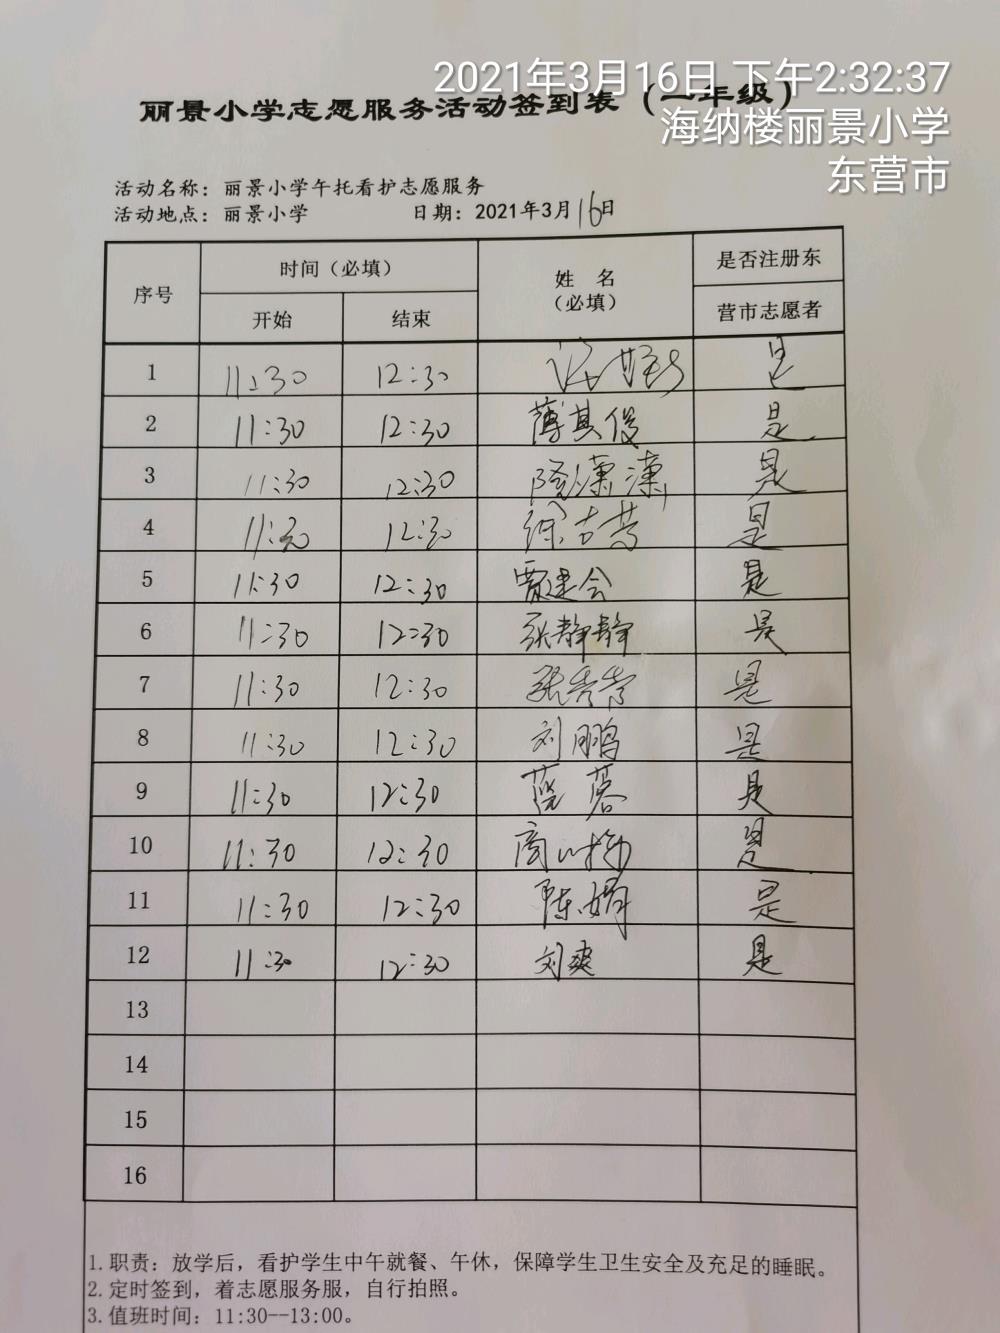 2021年3月16日 下午2:32:37
海纳楼丽景小学
东营市
丽景小学志愿服务活动签到表（一年级）
活动名称：丽景小学午托看护志愿服务
活动地点：丽景小学 日期：2021年3月16日
序号 时间（必填） 姓 名 （必填） 是否注册东
开始 结束 营市志愿者
1 11:30 12:30 是
2 11:30 12:30 薄其俊 是
3 11:30 12:30 是
4 11:30 12:30 徐吉芳 是
5 11:30 12:30 贾建会 是
6 11:30 12:30 张静静 是
7 11:30 12:30 是
8 11:30 12:30 刘鹏 是
9 11:30 12:30 蓉 是
10 11:30 12:30 是
11 11:30 12:30 陈娟 是
12 11:30 12:30 刘爽 是
13
14
15
16
1.职责：放学后，看护学生中午就餐、午休，保障学生卫生安全及充足的睡眠。
2.定时签到，着志愿服务服，自行拍照。
3.值班时间：11:30--13:00。